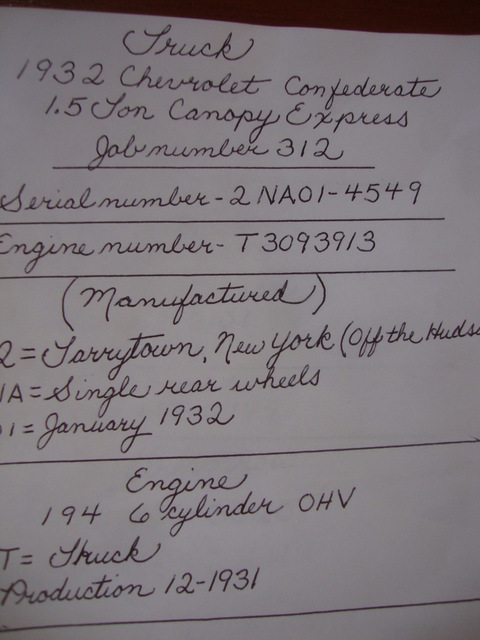 Truck
1932 Chevrolet Confederate
1.5 Ton Canopy Express
Job number 312
Serial number - 2 NA01-4549
Engine number - T3093913
(Manufactured)
2 = Tarrytown, New York (Off the Huds
NA = Single rear wheels
01 = January 1932
Engine
194 6 cylinder OHV
T = Truck
Production 12-1931